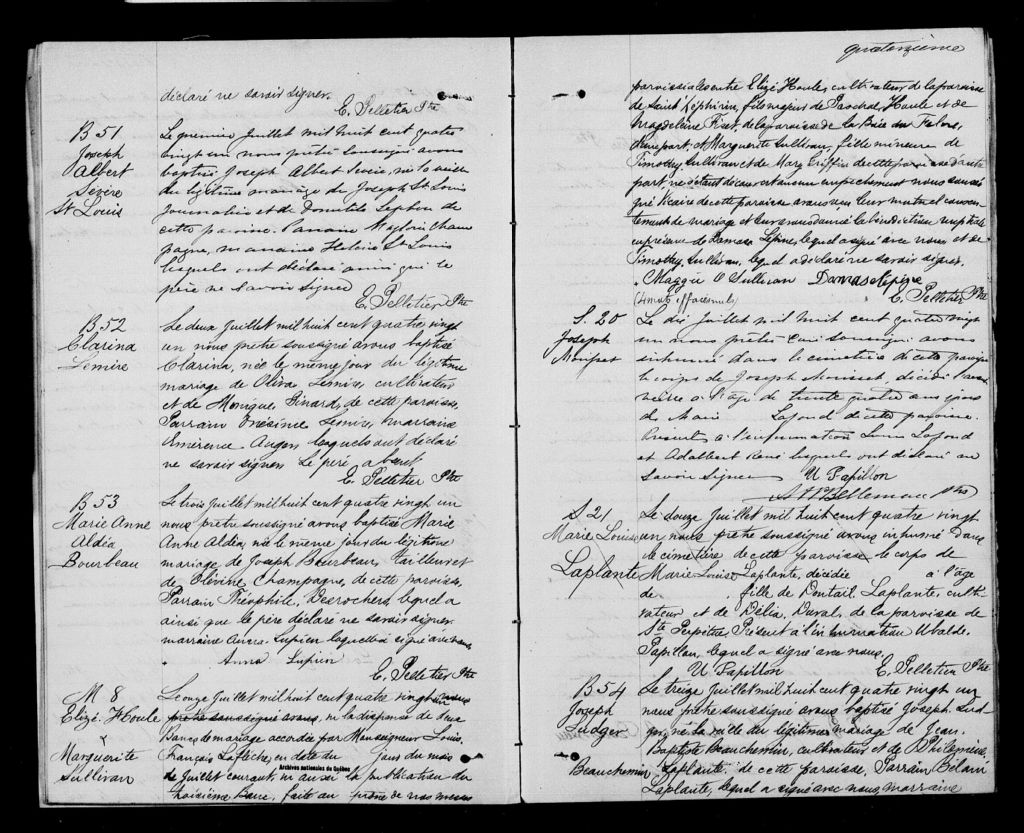 déclaré ne savoir signer.
E. Pelletier Ptre
B 51
Joseph
Albert
Sévère
St Louis
Le premier Juillet mil huit cent quatre
vingt un nous prêtre soussigné avons
baptisé Joseph Albert Sévère, né la veille
du légitime mariage de Joseph St Louis
Journalier et de Domitile de
cette paroisse. Parrain Cham
pagne, marraine St Louis
lesquels ont déclaré ainsi que le
père ne savoir signer
E. Pelletier Ptre
B 52
Clarina
Lemire
Le deux Juillet mil huit cent quatre vingt
un nous prêtre soussigné avons baptisé
Clarina, née le même jour du légitime
mariage de Olivier Lemire, cultivateur
et de Monique Pinard, de cette paroisse,
Parrain Onésime Lemire, marraine
Emérence Auger lesquels ont déclaré
ne savoir signer Le père absent
E. Pelletier Ptre
B 53
Marie Anne
Aldéa
Bourbeau
Le trois Juillet mil huit cent quatre vingt un
nous prêtre soussigné avons baptisé Marie
Anne Aldéa, née le même jour du légitime
mariage de Joseph Bourbeau, Tailleur et
de Olivine Champagne, de cette paroisse,
Parrain Théophile Desrochers, lequel a
ainsi que le père déclaré ne savoir signer
marraine Anna Lupien laquelle a signé avec nous
Anna Lupien
E. Pelletier Ptre
M 8
Elizé Houle
&
Marguerite
Sullivan
Le onze Juillet mil huit cent quatre vingt un nous
prêtre soussigné avons, vu la dispense de deux
Bancs de mariage accordée par Monseigneur Louis
François Laflèche, en date du jour du mois
de Juillet courant, vu aussi la publication du
troisième Banc, faite au prône de nos messes
Archives nationales du Québec
quatorzième
paroissiales entre Elizé Houle, cultivateur de la paroisse
de Saint Zéphirin, fils majeur de Paschal Houle et de
Magdeleine Fiset, de la paroisse de la Baie du Febvre,
d'une part, et Marguerite Sullivan, fille mineure de
Timothy Sullivan et de Mary Griffin de cette paroisse d'autre
part, ne s'étant découvert aucun empêchement nous soussi
gné Vicaire de cette paroisse avons reçu leur mutuel consen
tement de mariage et leur avons donné la bénédiction nuptiale
en présence de Damase Lépine, lequel a signé avec nous et de
Timothy Sullivan, lequel a déclaré ne savoir signer.
Maggie O Sullivan Damase Lépine
E. Pelletier Ptre
S. 20
Joseph
Le dix Juillet mil huit cent quatre vingt
un nous prêtre Curé soussigné avons
inhumé dans le cimetière de cette paroisse
le corps de Joseph décédé l'avant
veille à l'âge de trente quatre ans époux
de Marie Lafond de cette paroisse.
Présents à l'inhumation Louis Lafond
et Adalbert René lesquels ont déclaré ne
savoir signer U Papillon
Bellemare Ptre
S. 21
Marie Louise
Laplante
Le douze Juillet mil huit cent quatre vingt
un nous prêtre soussigné avons inhumé dans
le cimetière de cette paroisse le corps de
Marie Louise Laplante, décédée à l'âge
de fille de Laplante, culti-
vateur et de Délia Duval, de la paroisse de
Ste Perpétue, Présent à l'inhumation Ubalde
Papillon, lequel a signé avec nous.
U Papillon E. Pelletier Ptre
B 54
Joseph
Ludger
Beauchemin
Le treize Juillet mil huit cent quatre vingt un
nous prêtre soussigné avons baptisé Joseph Lud-
ger, né la veille du légitime mariage de Jean
Baptiste Beauchemin, cultivateur et de Philomène
Laplante de cette paroisse, Parrain, Bélani
Laplante, lequel a signé avec nous, marraine